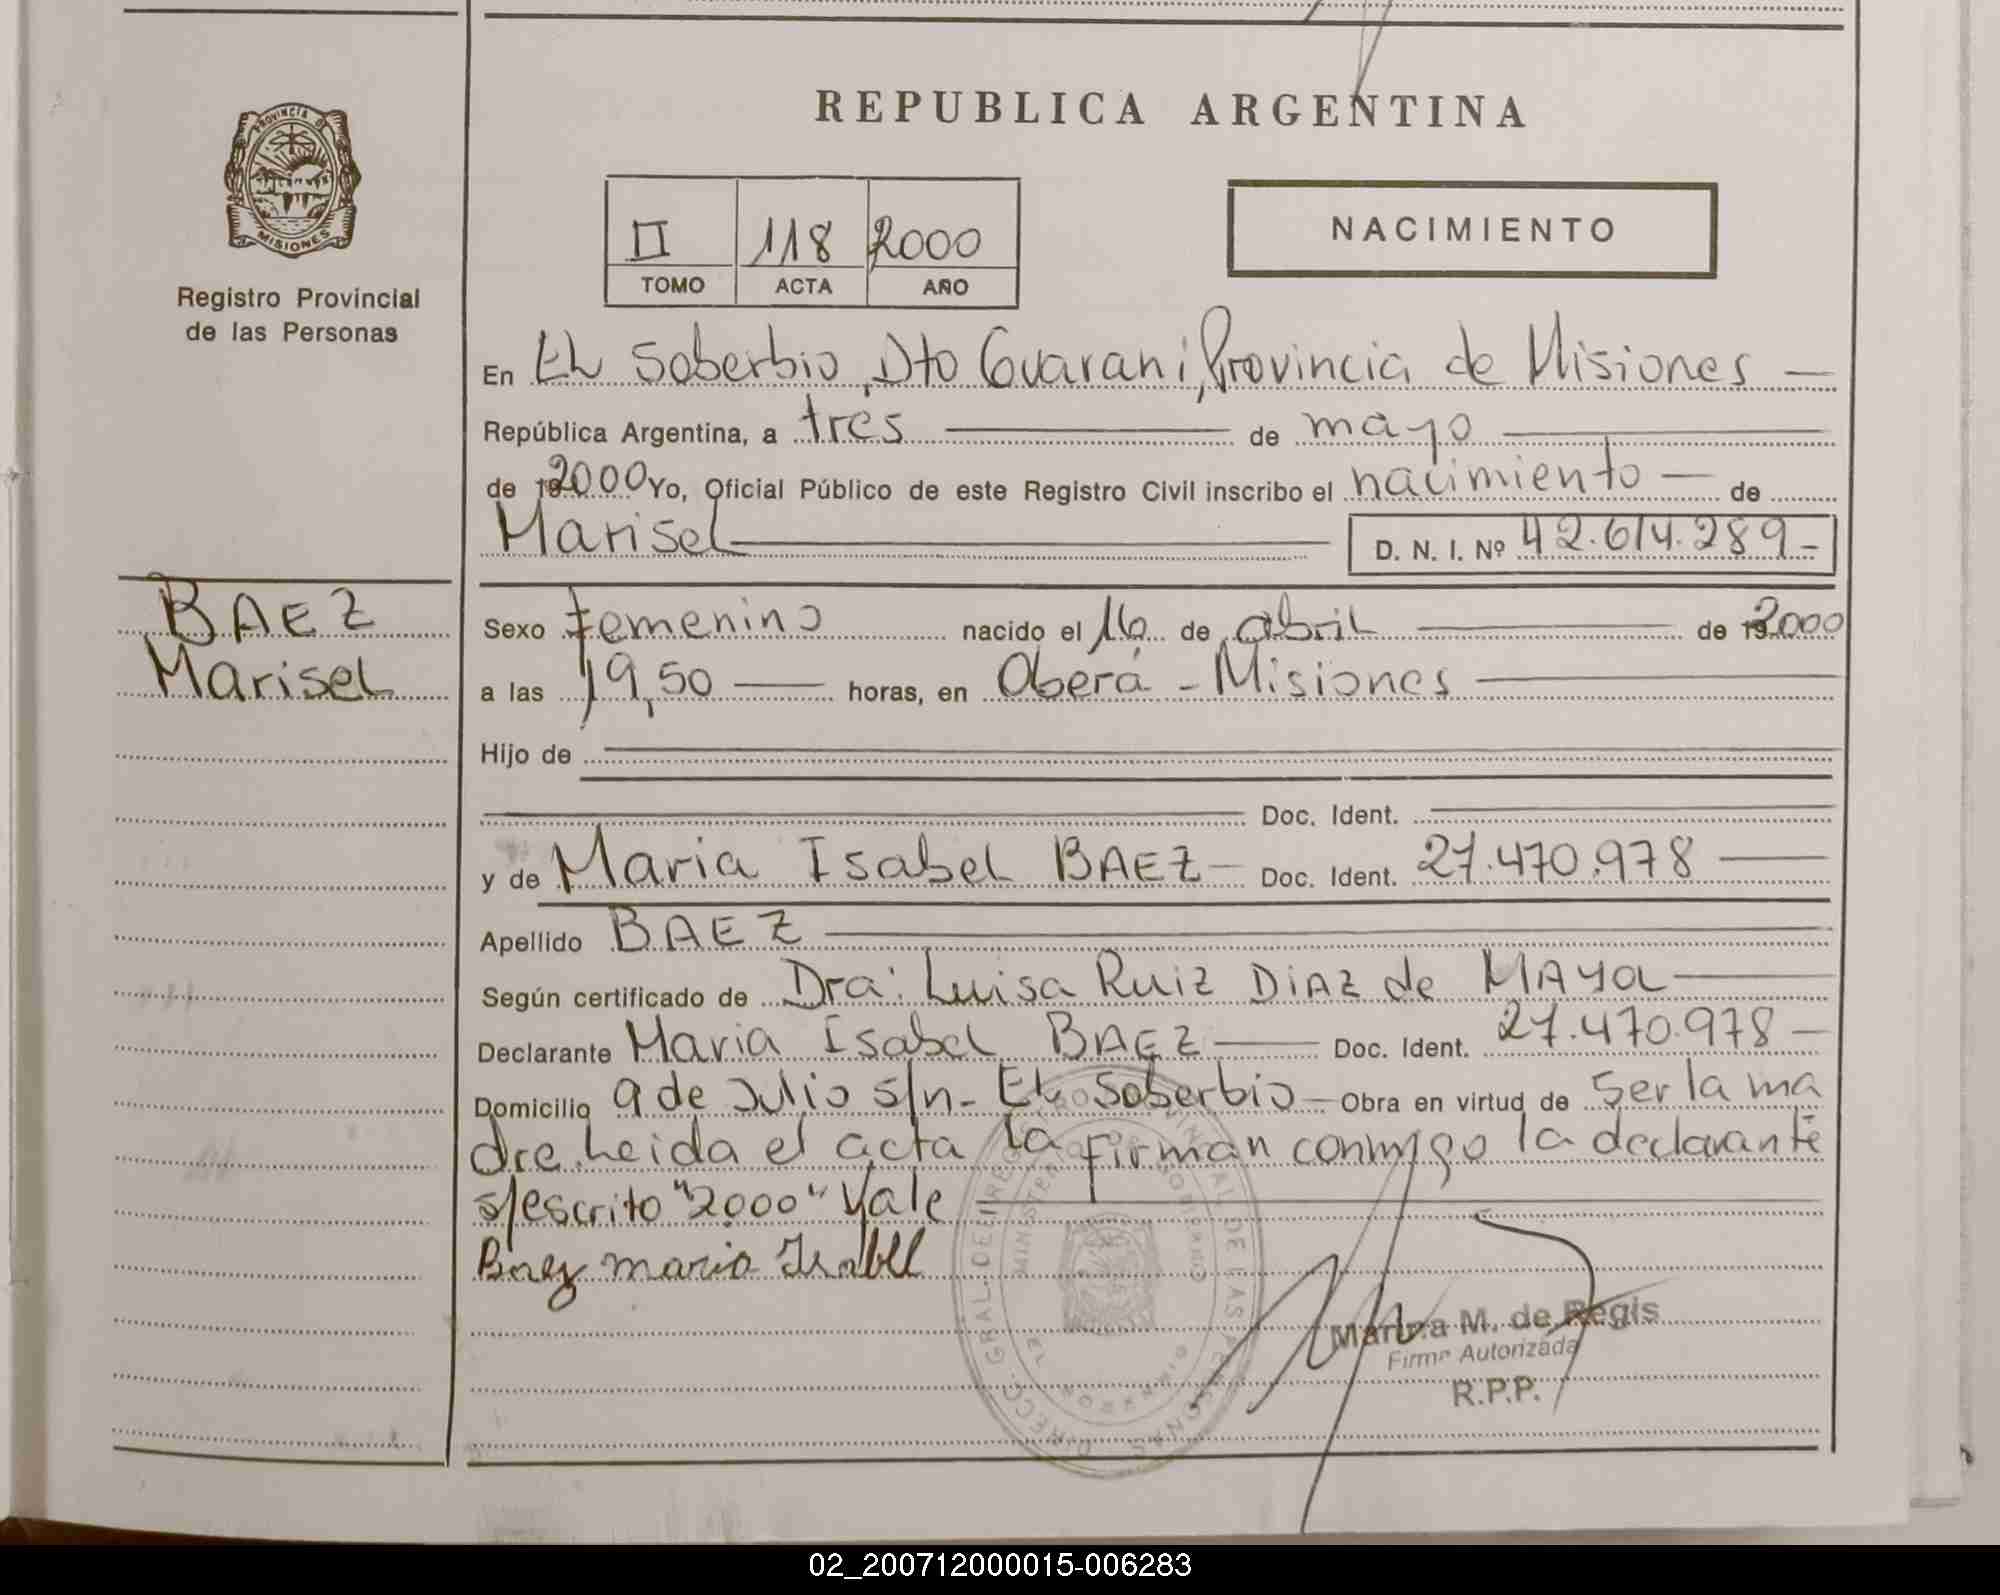 REPUBLICA ARGENTINA
PROVINCIA D
MISIONES
Registro Provincial
de las Personas
II 118 2000
TOMO ACTA AÑO
NACIMIENTO
En EL Soberbio, Dto Guarani, Provincia de Misiones
República Argentina, a tres de mayo
de 2000 Yo, Oficial Público de este Registro Civil inscribo el nacimiento de
Marisel D. N. I. Nº 42.614.289
BAEZ
Marisel
Sexo femenino nacido el 16 de abril de 2000
a las 19,50 horas, en Oberá - Misiones
Hijo de
Doc. Ident.
y de Maria Isabel BAEZ Doc. Ident. 27.470.978
Apellido BAEZ
Según certificado de Dra: Luisa Ruiz Diaz de MAYOL
Declarante Maria Isabel BAEZ Doc. Ident. 27.470.978
Domicilio 9 de Julio s/n - EL Soberbio Obra en virtud de ser la ma
dre. Leida el acta la firman conmigo la declarante
s/escrito "2000" Vale
Baez maria Isabel
DIRECC. GRAL. DEL REGISTRO PROVINCIAL DE LAS PERSONAS
MINISTERIO DE GOBIERNO
EL SOBERBIO
Marina M. de Regis
Firma Autorizada
R.P.P.
02_200712000015-006283